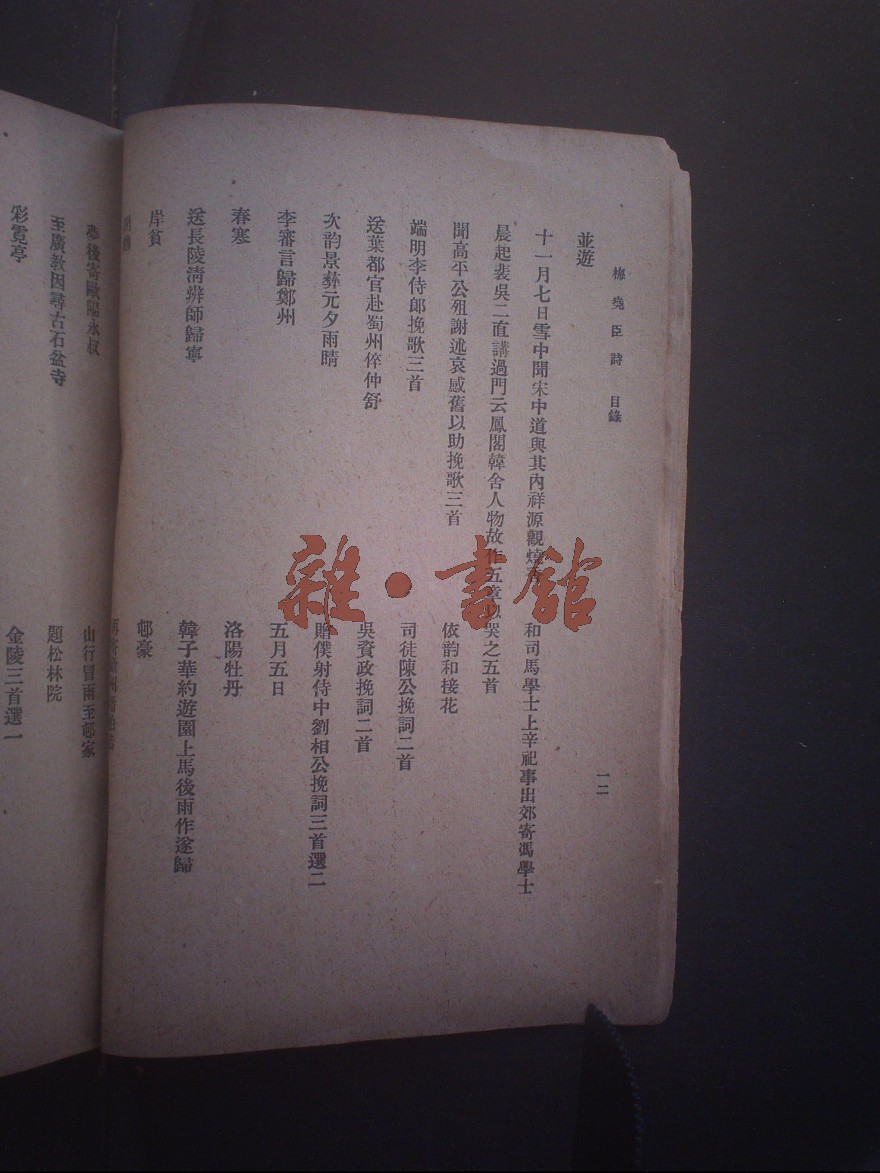 梅堯臣詩 目錄
一二
並遊
十一月七日雪中聞宋中道與其內祥源觀燒香
和司馬學士上辛祀事出郊寄馮學士
晨起裴吳二直講過門云鳳閣韓舍人物故作五章以哭之五首
聞高平公殂謝述哀感舊以助挽歌三首
依韵和接花
端明李侍郎挽歌三首
司徒陳公挽詞二首
送葉都官赴蜀州倅仲舒
吳資政挽詞二首
次韵景彝元夕雨晴
贈僕射侍中劉相公挽詞三首選二
李審言歸鄭州
五月五日
春寒
洛陽牡丹
送長陵淸辨師歸寧
韓子華約遊園上馬後雨作遂歸
岸貧
邨豪
夢後寄歐陽永叔
山行冒雨至邨家
至廣教因尋古石盆寺
題松林院
彩霓亭
金陵三首選一
雜·書館